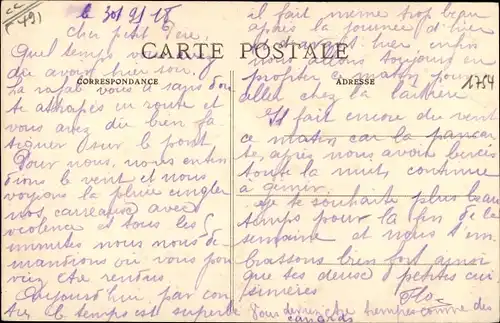 le 30/9/18
Cher petit Père,
CARTE POSTALE
CORRESPONDANCE
Quel temps
du avoir hier soir.
La rafale vous a sans dou
te attrapés en route et
vous avez du bien la
sur le pont.
Pour nous, nous enten
dions le vent et nous
voyions la pluie cingler
nos carreaux avec
violence et tous les
nous nous de
mandions où vous pou
viez être rendus
Aujourd'hui par con
tre le temps est superbe
il fait même trop beau
après la journée d'hier
et hier, enfin
nous allons toujours en
profiter ce matin pour
aller chez la laitière.
ADRESSE
1754
Il fait encore du vent
ce matin car la pancar
te, après nous avoir bercés
toute la nuit, continue
à gémir.
Je te souhaite plus beau
temps pour la fin de la
semaine et nous t'em
brassons bien fort ainsi
que tes deux petites cui
sinières
Flo
Vous devez être trempés comme des
canards